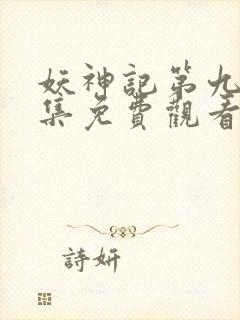 妖神記第九
集免費觀看
詩妍